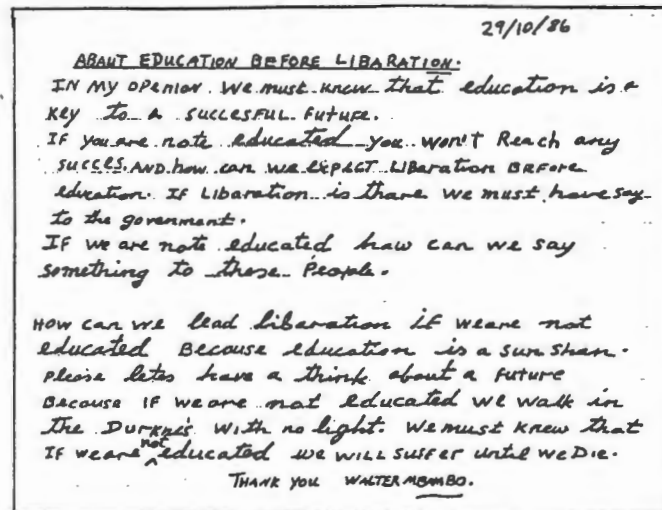 29/10/86
ABAUT EDUCATION BEFORE LIBARATION.
IN MY OPENIOR. We must knew that education is a
key to a succesful future.
If you are note educated you won't Reach any
succes. AND how can we expect Libaration Before
education. If Libaration is thare we must have say
to the govenment.
If we are note educated haw can we say
something to these People.
HOW can we lead libaration if weare not
educated Because education is a sun shan.
please letes have a think about a future
Because if we are not educated we walk in
the Durknis with no light. We must knew that
If weare not educated we will suffer until we Die.
THANK YOU WALTER MBAMBO.